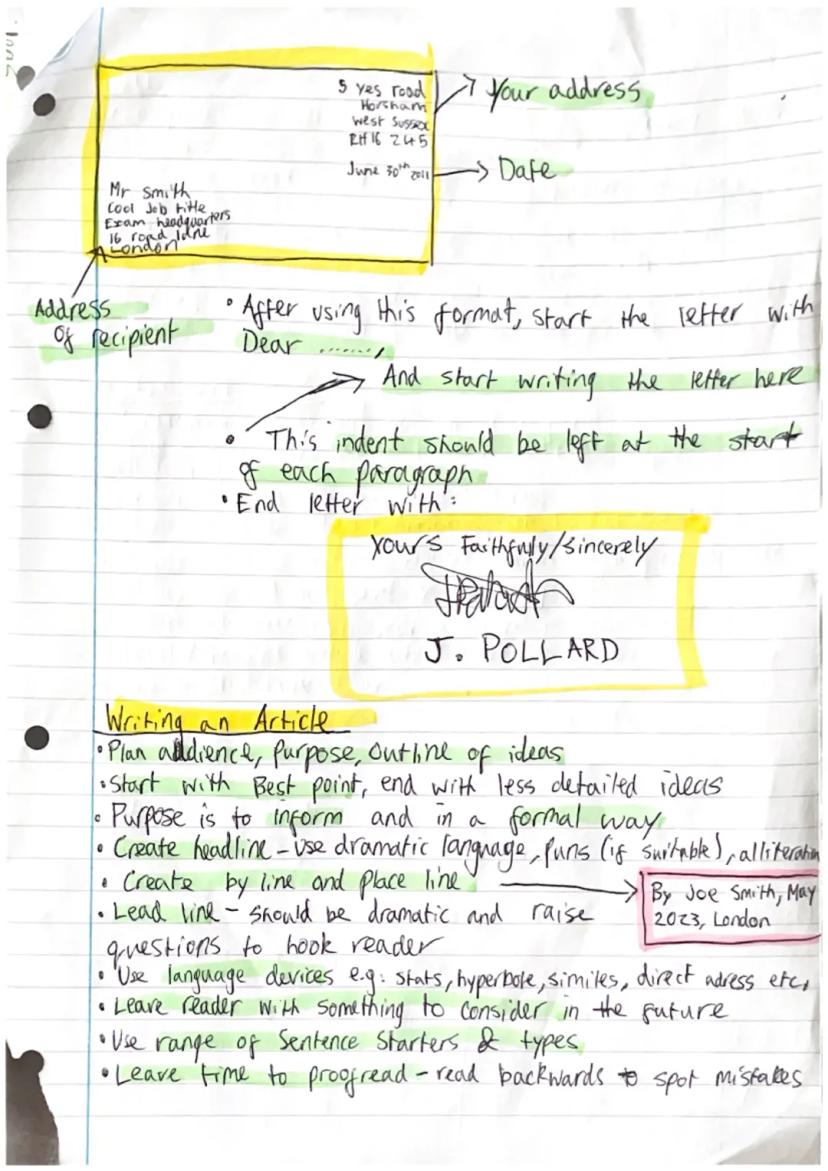 5 Yes road
Horsham
West Sussex
RH16 245
June 30th 2011
Your address
Date
Mr Smith
Cool Job title
Exam headquarters
16 road lane
London
Address
of recipient
• After using this format, start the letter with
Dear .......,
And start writing the letter here
• This indent should be left at the start
of each paragraph
• End letter with:
Yours Faithfully/Sincerely
J. POLLARD
Writing an Article
• Plan audience, purpose, outline of ideas
• Start with Best point, end with less detailed ideas
• Purpose is to inform and in a formal way
• Create headline – use dramatic language, puns (if suitable), alliteration
• Create by line and place line
By Joe Smith, May
2023, London
• Lead line – should be dramatic and raise
questions to hook reader
• Use language devices e.g: stats, hyperbole, similes, direct adress etc,
• Leave reader with something to consider in the future
• Use range of Sentence Starters & types
• Leave time to proofread – read backwards to spot mistakes